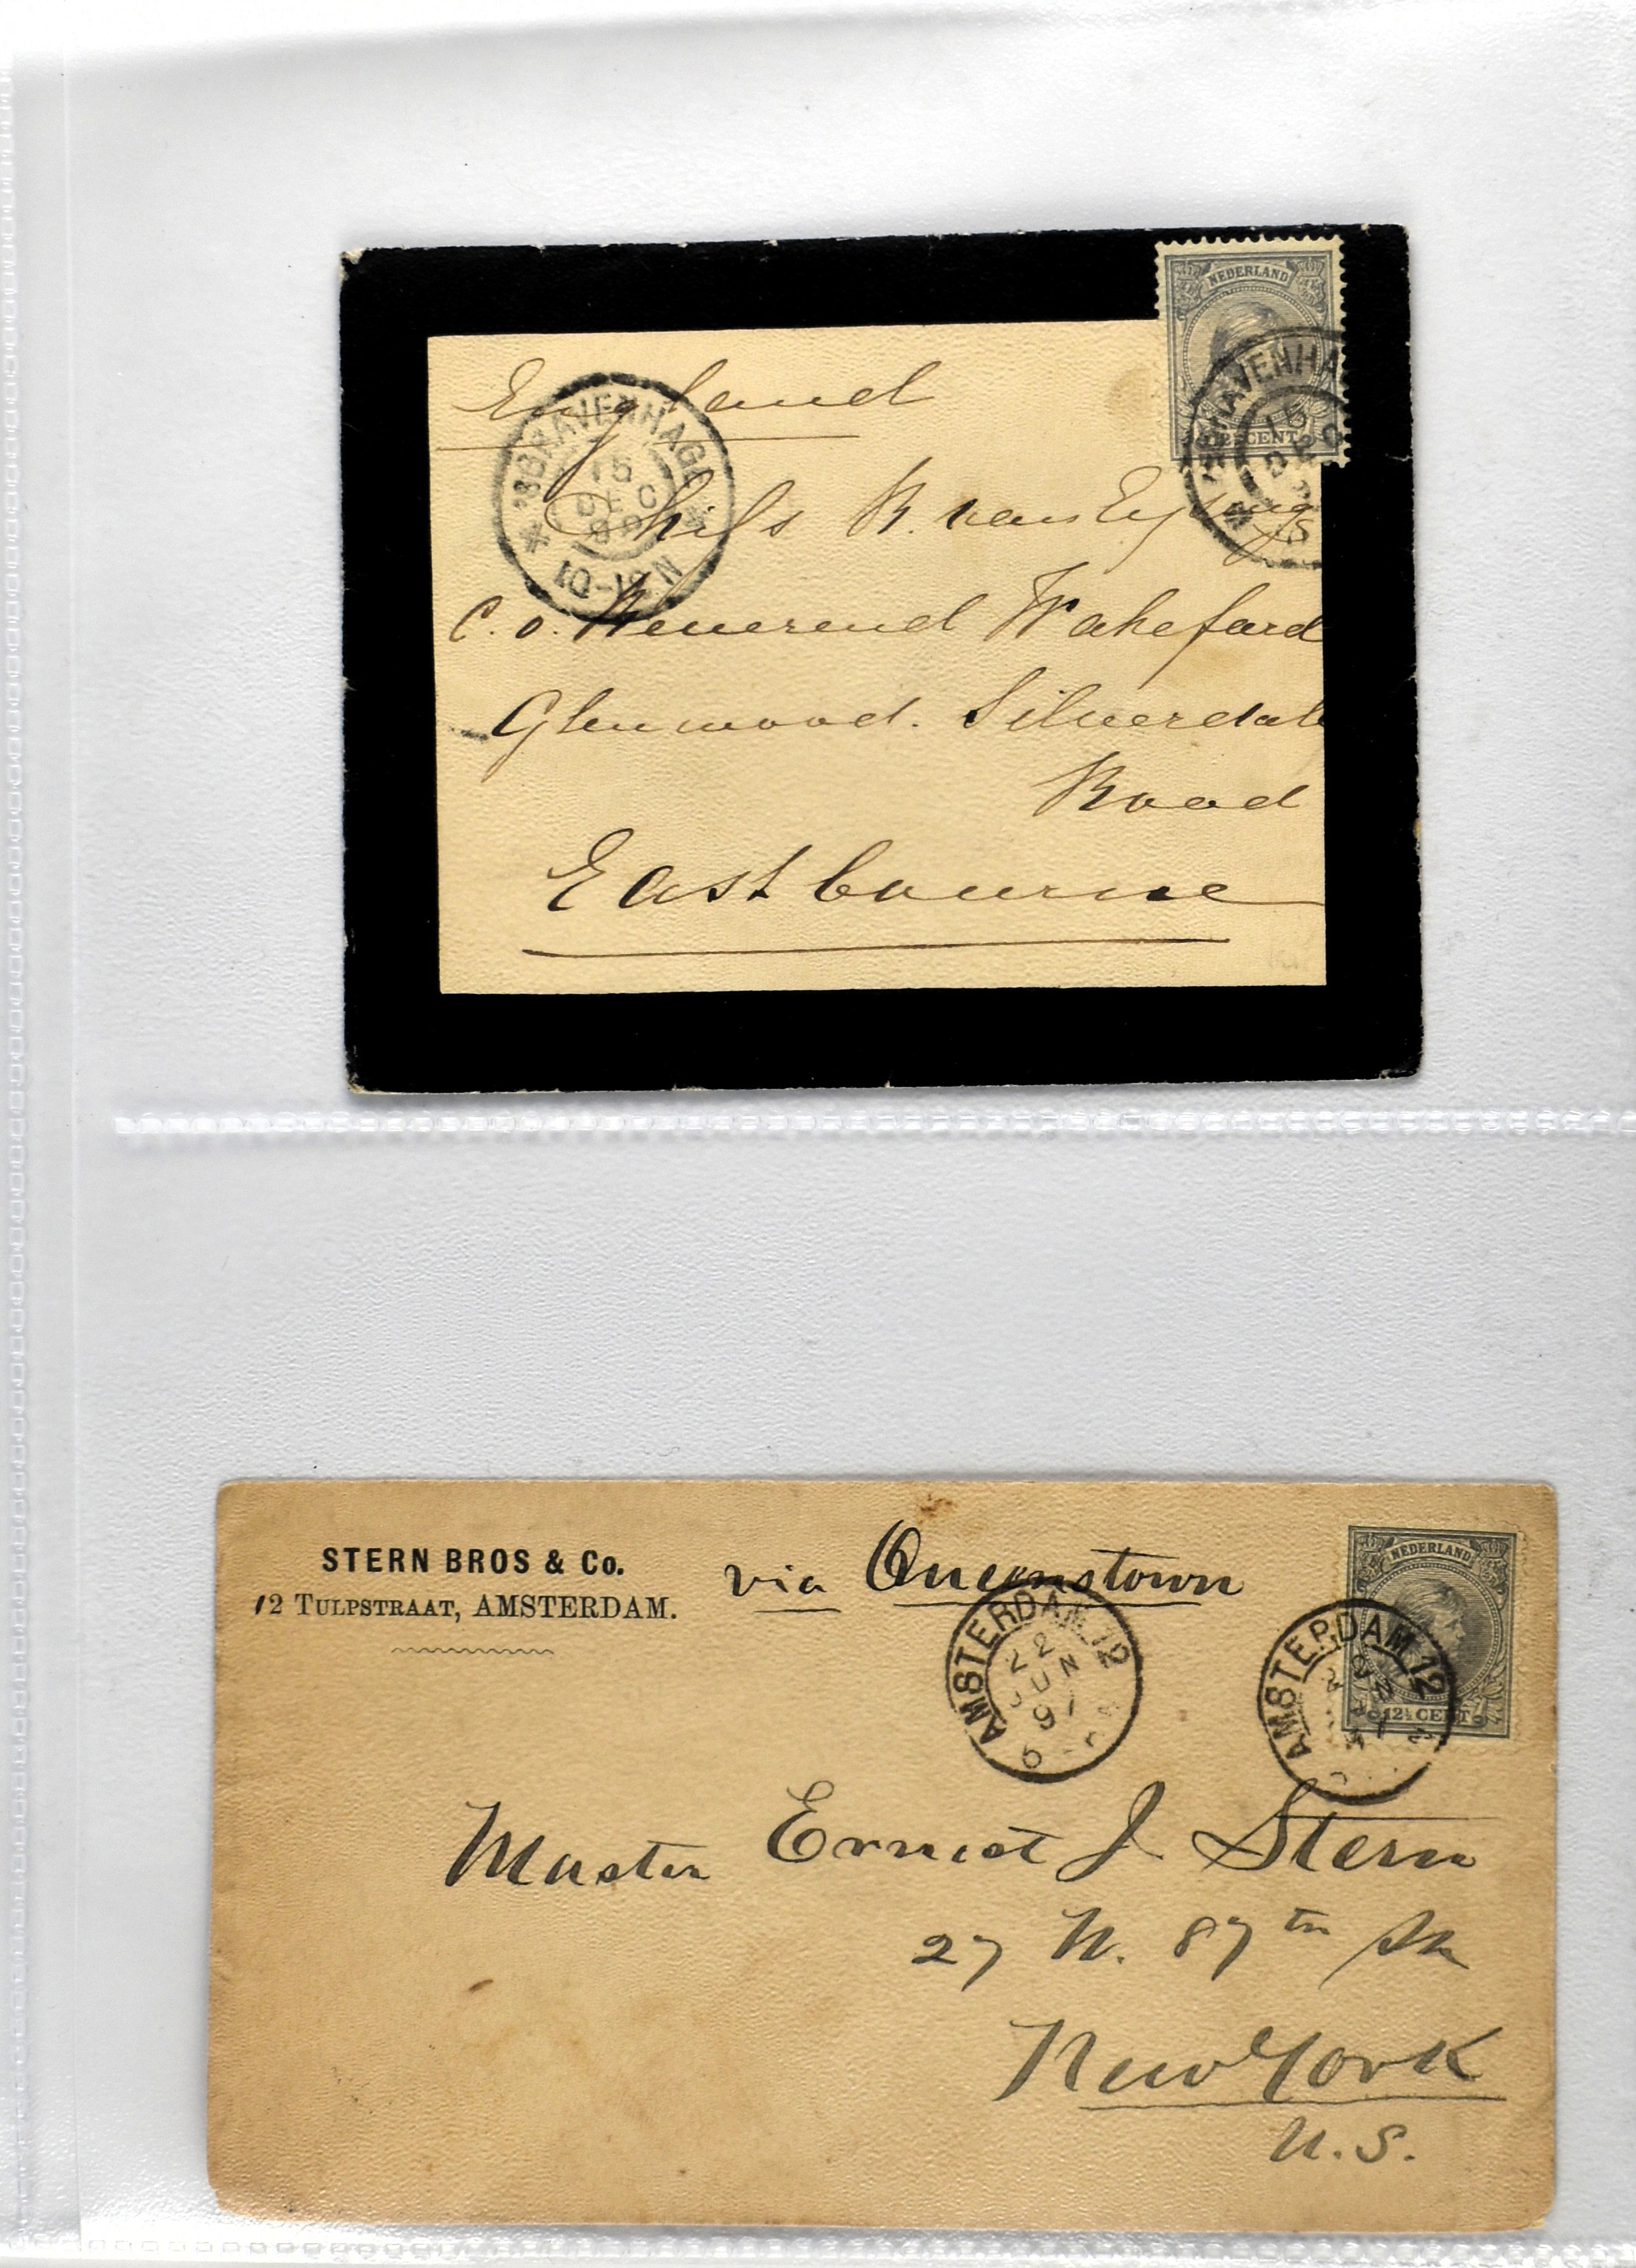 NEDERLAND
12½ CENT
England
'SGRAVENHAGE
15
DEC
10-12N
'SGRAVENHA
15
R. van Eysinga
C.o. Reverend Wakeford
Glenwood. Silverdale
Road
Eastbourne
STERN BROS & Co.
12 TULPSTRAAT, AMSTERDAM.
via Queenstown
NEDERLAND
12½ CENT
AMSTERDAM 12
22
JUN
97
AMSTERDAM 12
Master Ernest J Stern
27 W. 87th St
New York
U.S.